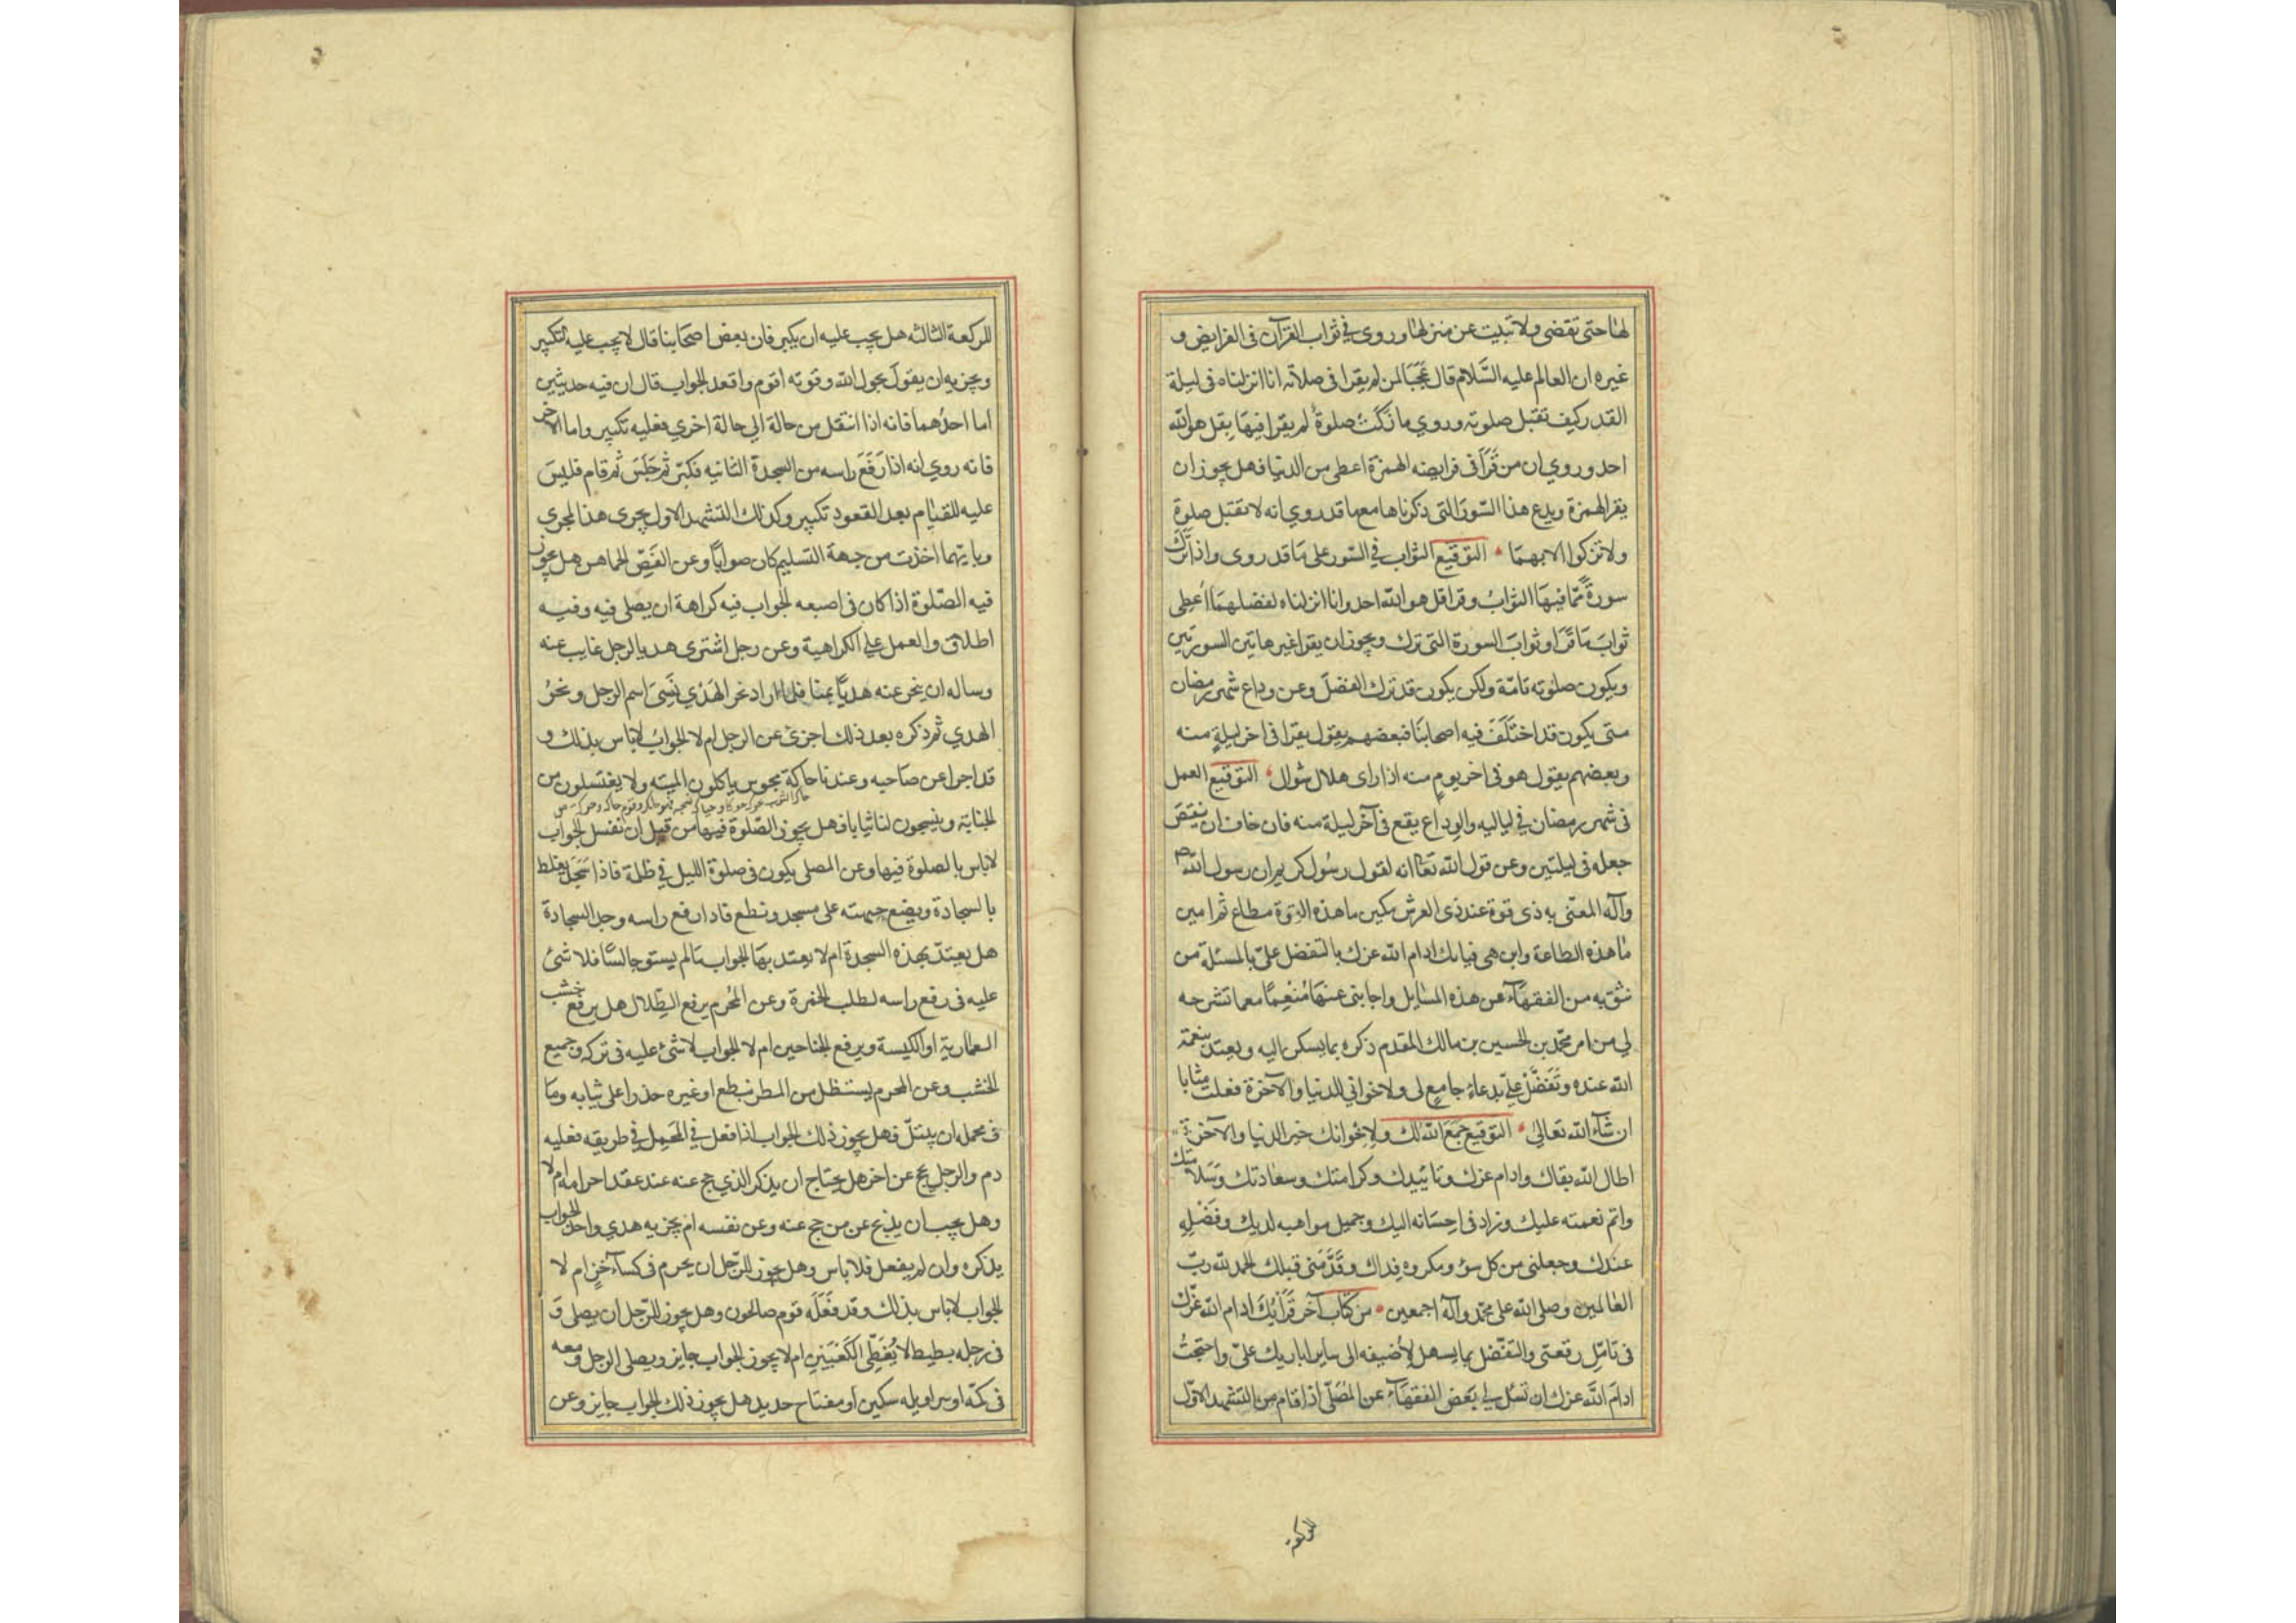 لها حتى تقضى ولا تبيت عن منزلها وروى في ثواب القرآن فى الفرايض و
غيره ان العالم عليه السَّلام قال عَجَبًا لمن لم يقرا فى صلاته انا انزلناه فى ليلة
القدر كيف تقبل صلوته وروي ما زكت صلوةٌ لم يقرا فيها بقل هو الله
احد وروي ان من قَرَأَ فى فرايضه الهمزة اعطى من الدنيا فهل يجوز ان
يقرا الهمزة ويدع هذا السّورَ التى ذكرناها مع ما قد روي انه لا تقبل صلوة
ولا تزكوا الا بهمَا التوقيع الثواب في السّور على مَا قد روى واذا ترك
سورةً ممّا فيهَا الثوابُ وقرا قل هو الله احد وانا انزلناه لفضلهمَا اُعطِى
ثوابَ مَا قَرَا وثوابَ السورة التى ترك ويجوز ان يقرا غير هاتين السورتين
ويكون صلوته تامّة ولكن يكون قد ترك الفضلَ وعن وداع شهر رمضان
متى يكون قد اختَلَفَ فيه اصحابنَا فبعضهم يقول يقرا فى اخر ليلةٍ منه
وبعضهم يقول هو فى اخر يومٍ منه اذا راى هلال شوال التوقيع العمل
فى شهر رمضان في لياليه والوداع يقع فى آخر ليلة منه فان خاف ان ينقصَ
جعله فى ليلتين وعن قول الله تعا انه لقول رسُول كريم ان رسول الله ص
وآله المعنّى به ذى قوة عند ذى العرش مكين ما هذه القوة مطاع ثم امين
ما هذه الطاعة واين هى فرايك ادام الله عزك بالتفضل علىّ بالمسئلة من
تثق به من الفقهآء عن هذه المسايل واجابنى عنهَا مُنعِمًا مع ما تشرحه
لي من امر محمّد بن الحسين بن مالك المقدم ذكره بما يسكن اليه ويعتد بنعمة
الله عنده وتَفَضَّلْ علىّ بدعاءٍ جامعٍ لى ولاخوانى للدنيا والآخرة فعلت مثابا
ان شآء الله تعالى التوقيع جمَعَ الله لك ولاِخوانك خير الدنيا والآخرة
اطال الله بقاك وادام عزك وتاييدك وكرامتك وسعادتك وسَلامتك
واتم نعمته عليك وزاد فى احِسَانه اليك وجميل مواهبه لديك وفَضْلِهِ
عندك وجعلنى من كل سوء ومكروه فِداك وقدَّمَنى قبلك الحمد لله ربّ
العالمين وصلى الله على محمّد وآله اجمعين من كتاب آخر فَرَأيُكَ ادام الله عزّك
فى تامّلِ رقعتى والتفضل بما يسهل لاُضيفه الى ساير اياديك علىّ واحتجتُ
ادامَ الله عزك ان تسئل لي بَعض الفقهآء عن المُصَلّى اذا قام من التشهد الاوّل
للركعة
للركعة الثالثه هل يجب عليه ان يكبر فان بعض اصحابنا قال لا يجب عليه التكبير
ويجزيه ان يقولَ بحول الله وقوته اقوم واقعد الجواب قال ان فيه حديثين
اما احدُهما فانه اذا انتقل من حالة الى حالة اخري فعليه تكبير واما الاخر
فانه روي انه اذا رَفَعَ راسه من السجدة الثانيه فكبّر ثم جَلَسَ ثم قام فليسَ
عليه للقيام بعد القعود تكبير وكذلك التشهد الاول يجرى هذا المجرى
وبايّهما اخذت من جهة التسليم كان صوابًا وعن الفَصّ الخماهن هل يجوز
فيه الصّلوة اذا كان فى اصبعه الجواب فيه كراهة ان يصلى فيه وفيه
اطلاق والعمل على الكراهية وعن رجل اشترى هديا لرجل غايب عنه
وساله ان ينحر عنه هديًا بمنا فلما اراد نحر الهَدْي نَسِىَ اسم الرجل ونحرَ
الهدي ثم ذكره بعد ذلك اجزئ عن الرجل ام لا الجوابُ لا باس بذلك و
قد اجزا عن صَاحبه وعندنا حاكة مجوس ياكلون الميته ولا يغتسلون من
الجنابة وينسجون لنا ثيابا فهل يجوز الصّلوة فيهَا من قبل ان تغسل الجواب
لا باس بالصلوة فيها وعن المصلى يكون فى صلوة الليل في ظلمة فاذا سَجَدَ يغلط
بالسجادة ويضع جبهته على مسجد ونطع فاذا رفع راسه وجد السجادة
هل يعتدّ بهذه السجدة ام لا يعتد بهَا الجواب مَا لم يستو جالسًا فلا شئ
عليه فى رفع راسه لطلب الخمرة وعن المُحرم يرفع الظِّلال هل يرفع خشب
العمارية او الكنيسة ويرفع الجناحين ام لا الجواب لا شئ عليه فى تركه وجميع
الخشب وعن المحرم يستظل من المطر بنطع او غيره حذرا على ثيابه ومَا
فى محمله ان يبتلّ فهل يجوز ذلك الجواب اذا فعل في المَحمِل في طريقه فعليه
دم والرجل يحج عن اخر هل يحتاج ان يذكر الذي حج عنه عند عقد احرامه ام لا
وهل يجب ان يذبح عن من حج عنه وعن نفسه ام يجزيه هدي واحد الجواب
يذكره وان لم يفعل فلا باس وهل يجوز للرّجل ان يحرم فى كسآء خزٍ ام لا
الجواب لا باس بذلك وقد فَعَلَه قوم صالحون وهل يجوز للرّجل ان يصلى وَ
فى رجله بطيط لا يُغَطِّى الكَعْبَيْنِ ام لا يجوز الجواب جايز ويصلى الرجل ومعه
فى كمّه او سراويله سكين او مفتاح حديد هل يجوز ذلك الجواب جايز وعن